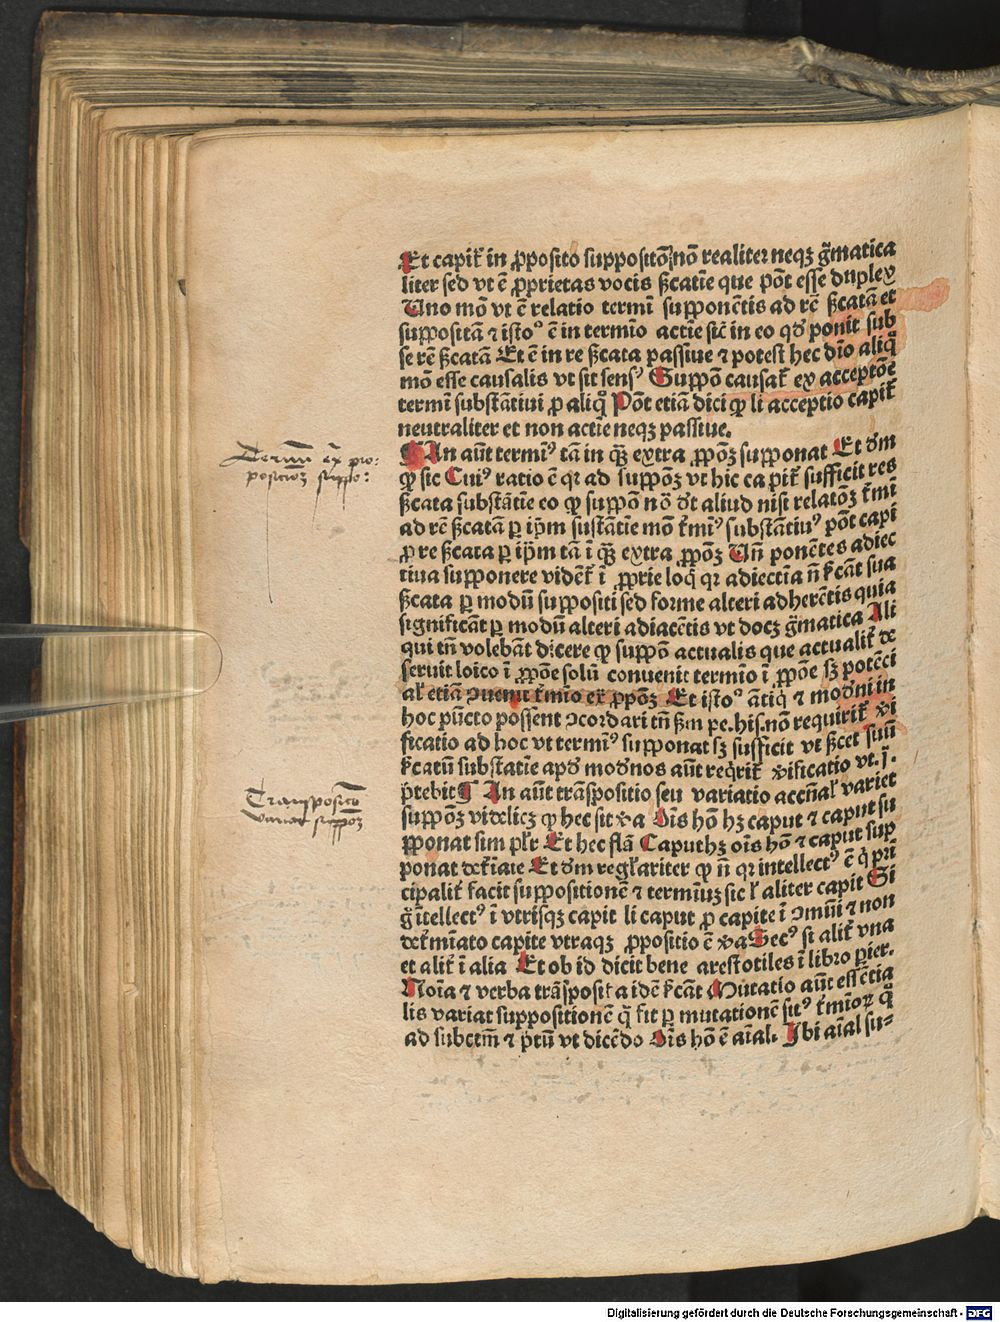 Et capit᷑ in ꝓposito suppositõ nõ realiter neqꝫ g̃matica
liter sed vt ẽ ꝓprietas vocis ſz̃catiẽ que põt esse duplex
Uno mõ vt ẽ relatio termĩ supponẽtis ad rẽ ſz̃catã et
suppositã ⁊ isto⁹ ẽ in termĩo actiẽ sic̃ in eo qð ponit sub
se rẽ ſz̃catã Et ẽ in re ſz̃cata passiue ⁊ potest hec dĩo aliq̃
mõ esse causalis vt sit sens⁹ Suppõ causat᷑ ex acceptõe
termĩ substãtiui ꝓ aliq̃ Põt etiã dici ꝙ li acceptio capit᷑
neutraliter et non actiẽ neqꝫ passiue.
¶ An aũt termi⁹ tã in qꝫ̃ extra ꝓpõꝫ supponat Et dm̃
ꝙ sic Cui⁹ ratio ẽ qꝛ ad suppõꝫ vt hic capit᷑ sufficit res
ſz̃cata substãtiẽ eo ꝙ suppõ nõ dt̃ aliud nisi relatõꝫ t᷑mĩ
ad rẽ ſz̃catã ꝑ ip̃m sustãtiẽ mõ t᷑mi⁹ substãtiu⁹ põt capi
ꝓ re ſz̃cata ꝑ ip̃m tã ĩ qꝫ̃ extra ꝓpõꝫ Uñ ponẽtes adiec
tiua supponere vident᷑ ĩ ꝓprie loq̃ qꝛ adiectiã ñ ſcãt sua
ſz̃cata ꝑ modũ suppositi sed forme alteri adherẽtis quia
significãt ꝑ modũ alteri adiacẽtis vt docꝫ g̃matica Ali
qui tñ volebãt dicere ꝙ suppõ actualis que actualit᷑ de
seruit loico ĩ ꝓpõe solũ conuenit termio ĩ ꝓpõe sꝫ potẽci
al᷑ etiã ꝯuenit t᷑mio ex ꝓpõꝫ Et isto⁹ ãtiq̃ ⁊ moðni in
hoc pũcto possent ꝯcordari tñ ſm̃ pe. his. nõ requirit᷑ ỹi
ficatio ad hoc vt termi⁹ supponat sꝫ sufficit vt ſz̃cet suũ
ſcatũ substatiẽ apð moðnos aũt reqrit᷑ ỹificatio vt. j̃.
p̃tebit ¶ An aũt trãspositio seu variatio accñal᷑ variet
suppõꝫ videlicꝫ ꝙ hec sit ỹa Oĩs hõ hꝫ caput ⁊ caput su
pponat sim pl᷑r Et hec flã Caput hꝫ oĩs hõ ⁊ caput sup
ponat det᷑iate Et dm̃ regl᷑ariter ꝙ ñ qꝛ intellect⁹ ẽ q̃ pri
cipalit᷑ facit suppositionẽ ⁊ termiuꝫ sic l᷑ aliter capit Si
g̃ ĩtellect⁹ ĩ vtrisqꝫ capit li caput ꝓ capite ĩ ꝯmũi ⁊ non
det᷑mĩato capite vtraqꝫ ꝓpositio ẽ ỹa Sec⁹ si alit᷑ vna
et alit᷑ ĩ alia Et ob id dicit bene arestotiles ĩ libro ꝑier.
Noĩa ⁊ verba trãsposita idẽ ſcãt Mutatio aũt essẽtia
lis variat suppositionẽ q̃ fit ꝑ mutationẽ sit⁹ t᷑mĩoꝝ q̃
ad subctm̃ ⁊ p̃tũ vt dicẽdo Oĩs hõ ẽ aĩal. Ibi aĩal su-
Terminus ex pro:
posicioꝫ suppo:
Transposicio
variat suppoꝫ
Digitalisierung gefördert durch die Deutsche Forschungsgemeinschaft - DFG